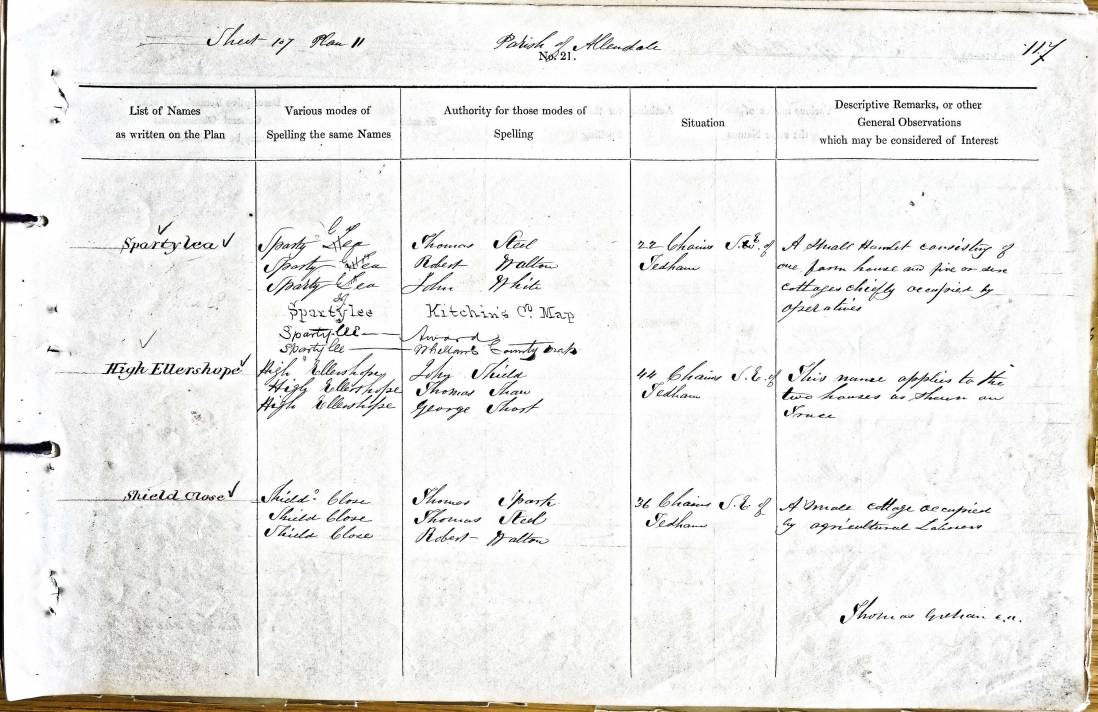 Sheet 107 Plan 11 Parish of Allendale 117
No. 21.
List of Names as written on the Plan
Various modes of Spelling the same Names
Authority for those modes of Spelling
Situation
Descriptive Remarks, or other General Observations which may be considered of Interest
Spartylea Sparty Lea Thomas Steel 22 Chains S.E. of A Small Hamlet consisting of
Sparty Lea Robert Walton Tedham one farm house and five or six
Sparty Lea John White cottages chiefly occupied by
Spartylee Kitchin's Co. Map operatives
Sparty lee Award
Sparty lee County map
High Ellershope High Ellershope John Shield 44 Chains S.E. of This name applies to the
High Ellershope Thomas Shaw Tedham two houses as shewn on
High Ellershope George Short Trace
Shield Close Shield Close Thomas Spark 36 Chains S.E. of A Small cottage occupied
Shield Close Thomas Steel Tedham by agricultural Laborers
Shield Close Robert Walton
Thomas